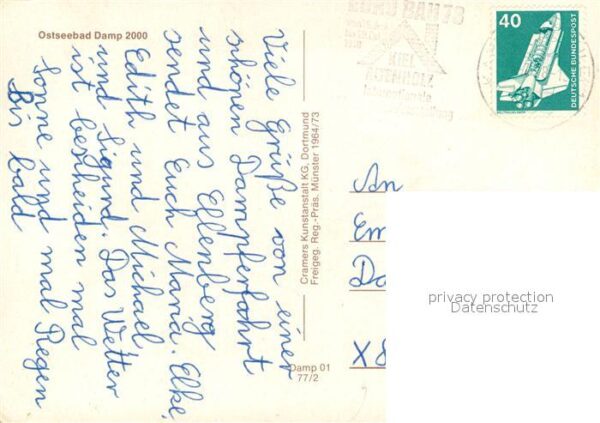 Ostseebad Damp 2000
Viele Grüße von einer
schönen Dampferfahrt
und aus Ellenberg
sendet Euch Maria. Elke,
Edith und Michael
und Sigund. Das Wetter
ist bescheiden mal
Sonne und mal Regen
Bis bald
Cramers Kunstanstalt KG, Dortmund
Freigeg. Reg.-Präs. Münster 1964/73
Damp 01
77/2
KIEL
Internationale
40
DEUTSCHE BUNDESPOST
An
Em
Da
X8
privacy protection
Datenschutz